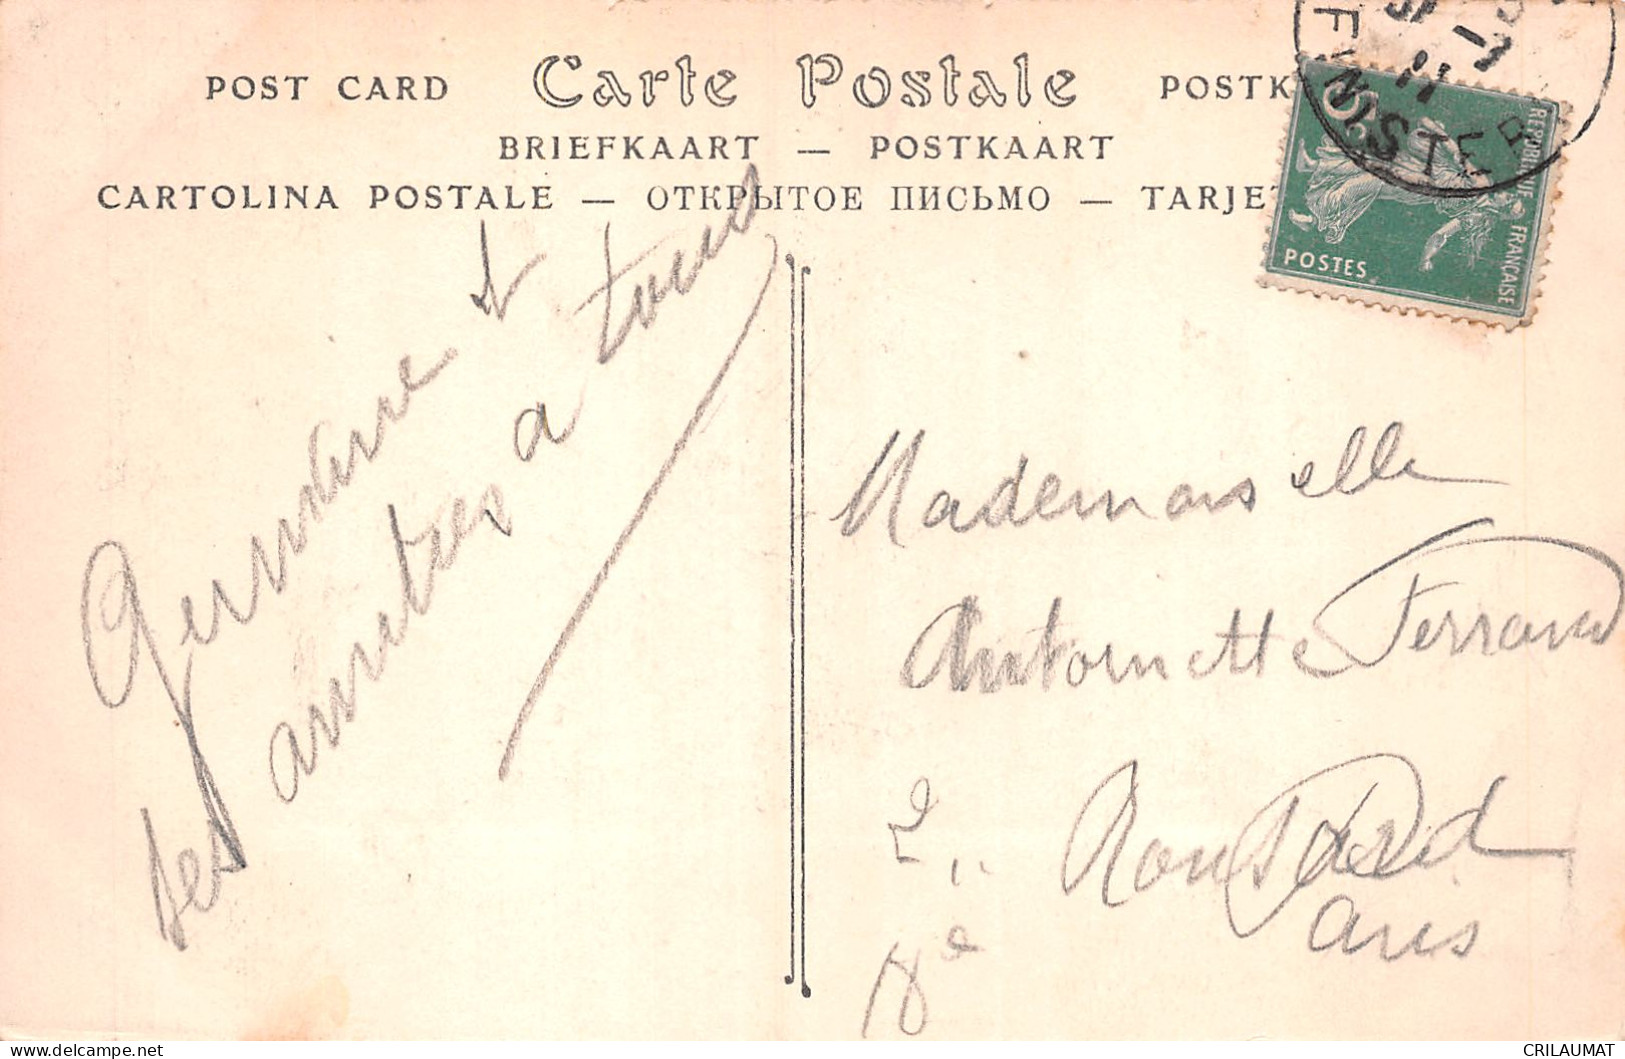 POST CARD Carte Postale POSTK
BRIEFKAART — POSTKAART
CARTOLINA POSTALE — ОТКРЫТОЕ ПИСЬМО — TARJE
FINISTERE
11
5c
REPUBLIQUE FRANÇAISE
POSTES
Germaine et
ses amitiés a tous
Mademoiselle
Antoinette Ferrand
2 Ronsard
Paris
18e
CRILAUMAT